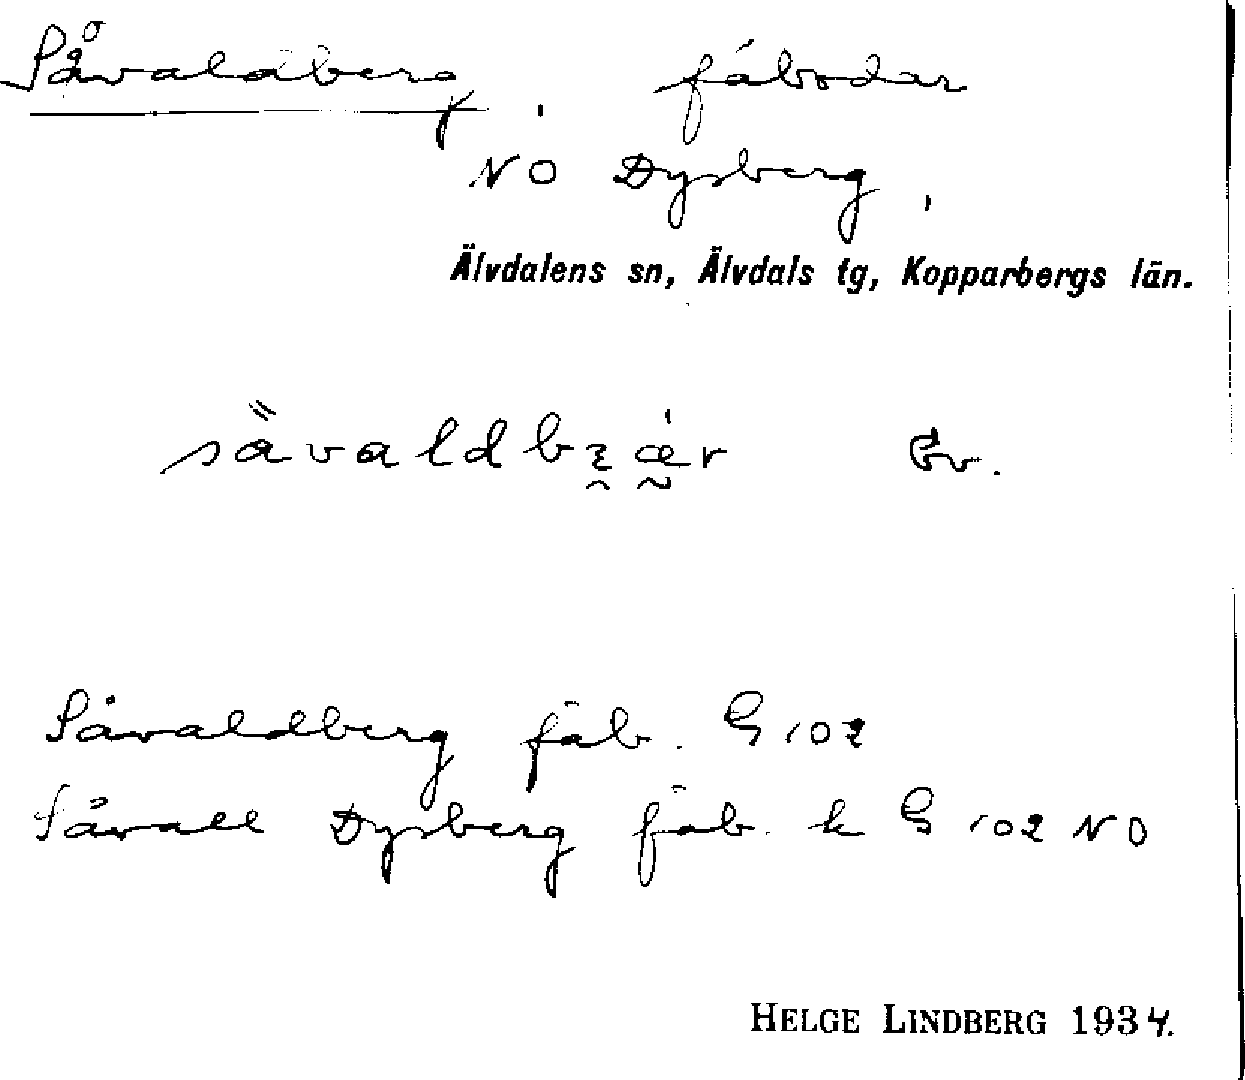 Såvaldberg, fäbodar
NO Dysberg,
Älvdalens sn, Älvdals tg, Kopparbergs län.
Öv.
Såvaldberg fäb. G 102
Såvall Dysberg fäb. k G 102 NO
HELGE LINDBERG 1934.